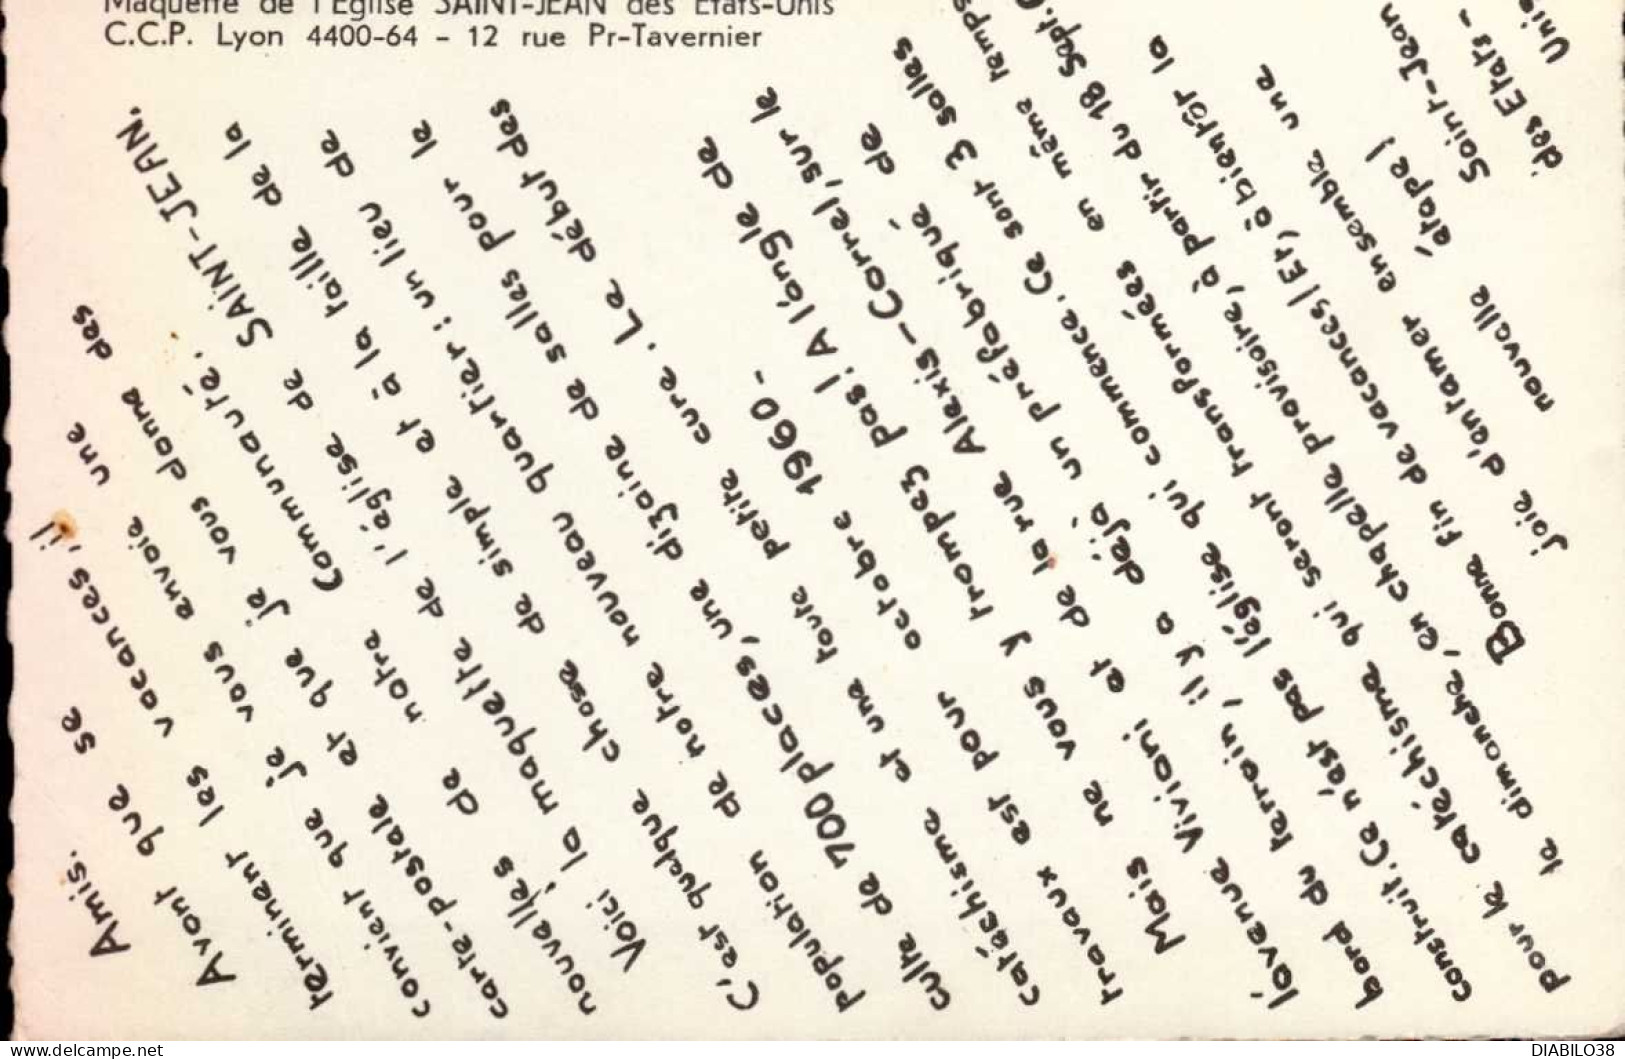 Maquette de l'Eglise SAINT-JEAN des Etats-Unis
C.C.P. Lyon 4400-64 - 12 rue Pr-Tavernier
Amis.
Avant que se
terminent les vacances, il
convient que je vous envoie une
carte-postale et que je vous donne des
nouvelles de notre Communauté.
Voici la maquette de l'église de SAINT-JEAN.
C'est quelque chose de simple et à la taille de la
population de notre nouveau quartier : un lieu de
culte de 700 places, une dizaine de salles pour le
catéchisme et une toute petite cure. Le début des
travaux est pour octobre 1960-
Mais ne vous y trompez pas! A l'angle de
l'avenue Viviani et de la rue Alexis-Carrel, sur le
bord du terrain, il y a déjà un préfabriqué de
construit. Ce n'est pas l'église qui commence. Ce sont 3 salles
pour le catéchisme qui seront transformées en même temps
le dimanche, en chapelle provisoire, à partir du 18 Sept.
Bonne fin de vacances! Et, à bientôt la
joie d'entamer ensemble une
nouvelle étape!
Saint-Jean
des Etats-
Unis
DIABILO38